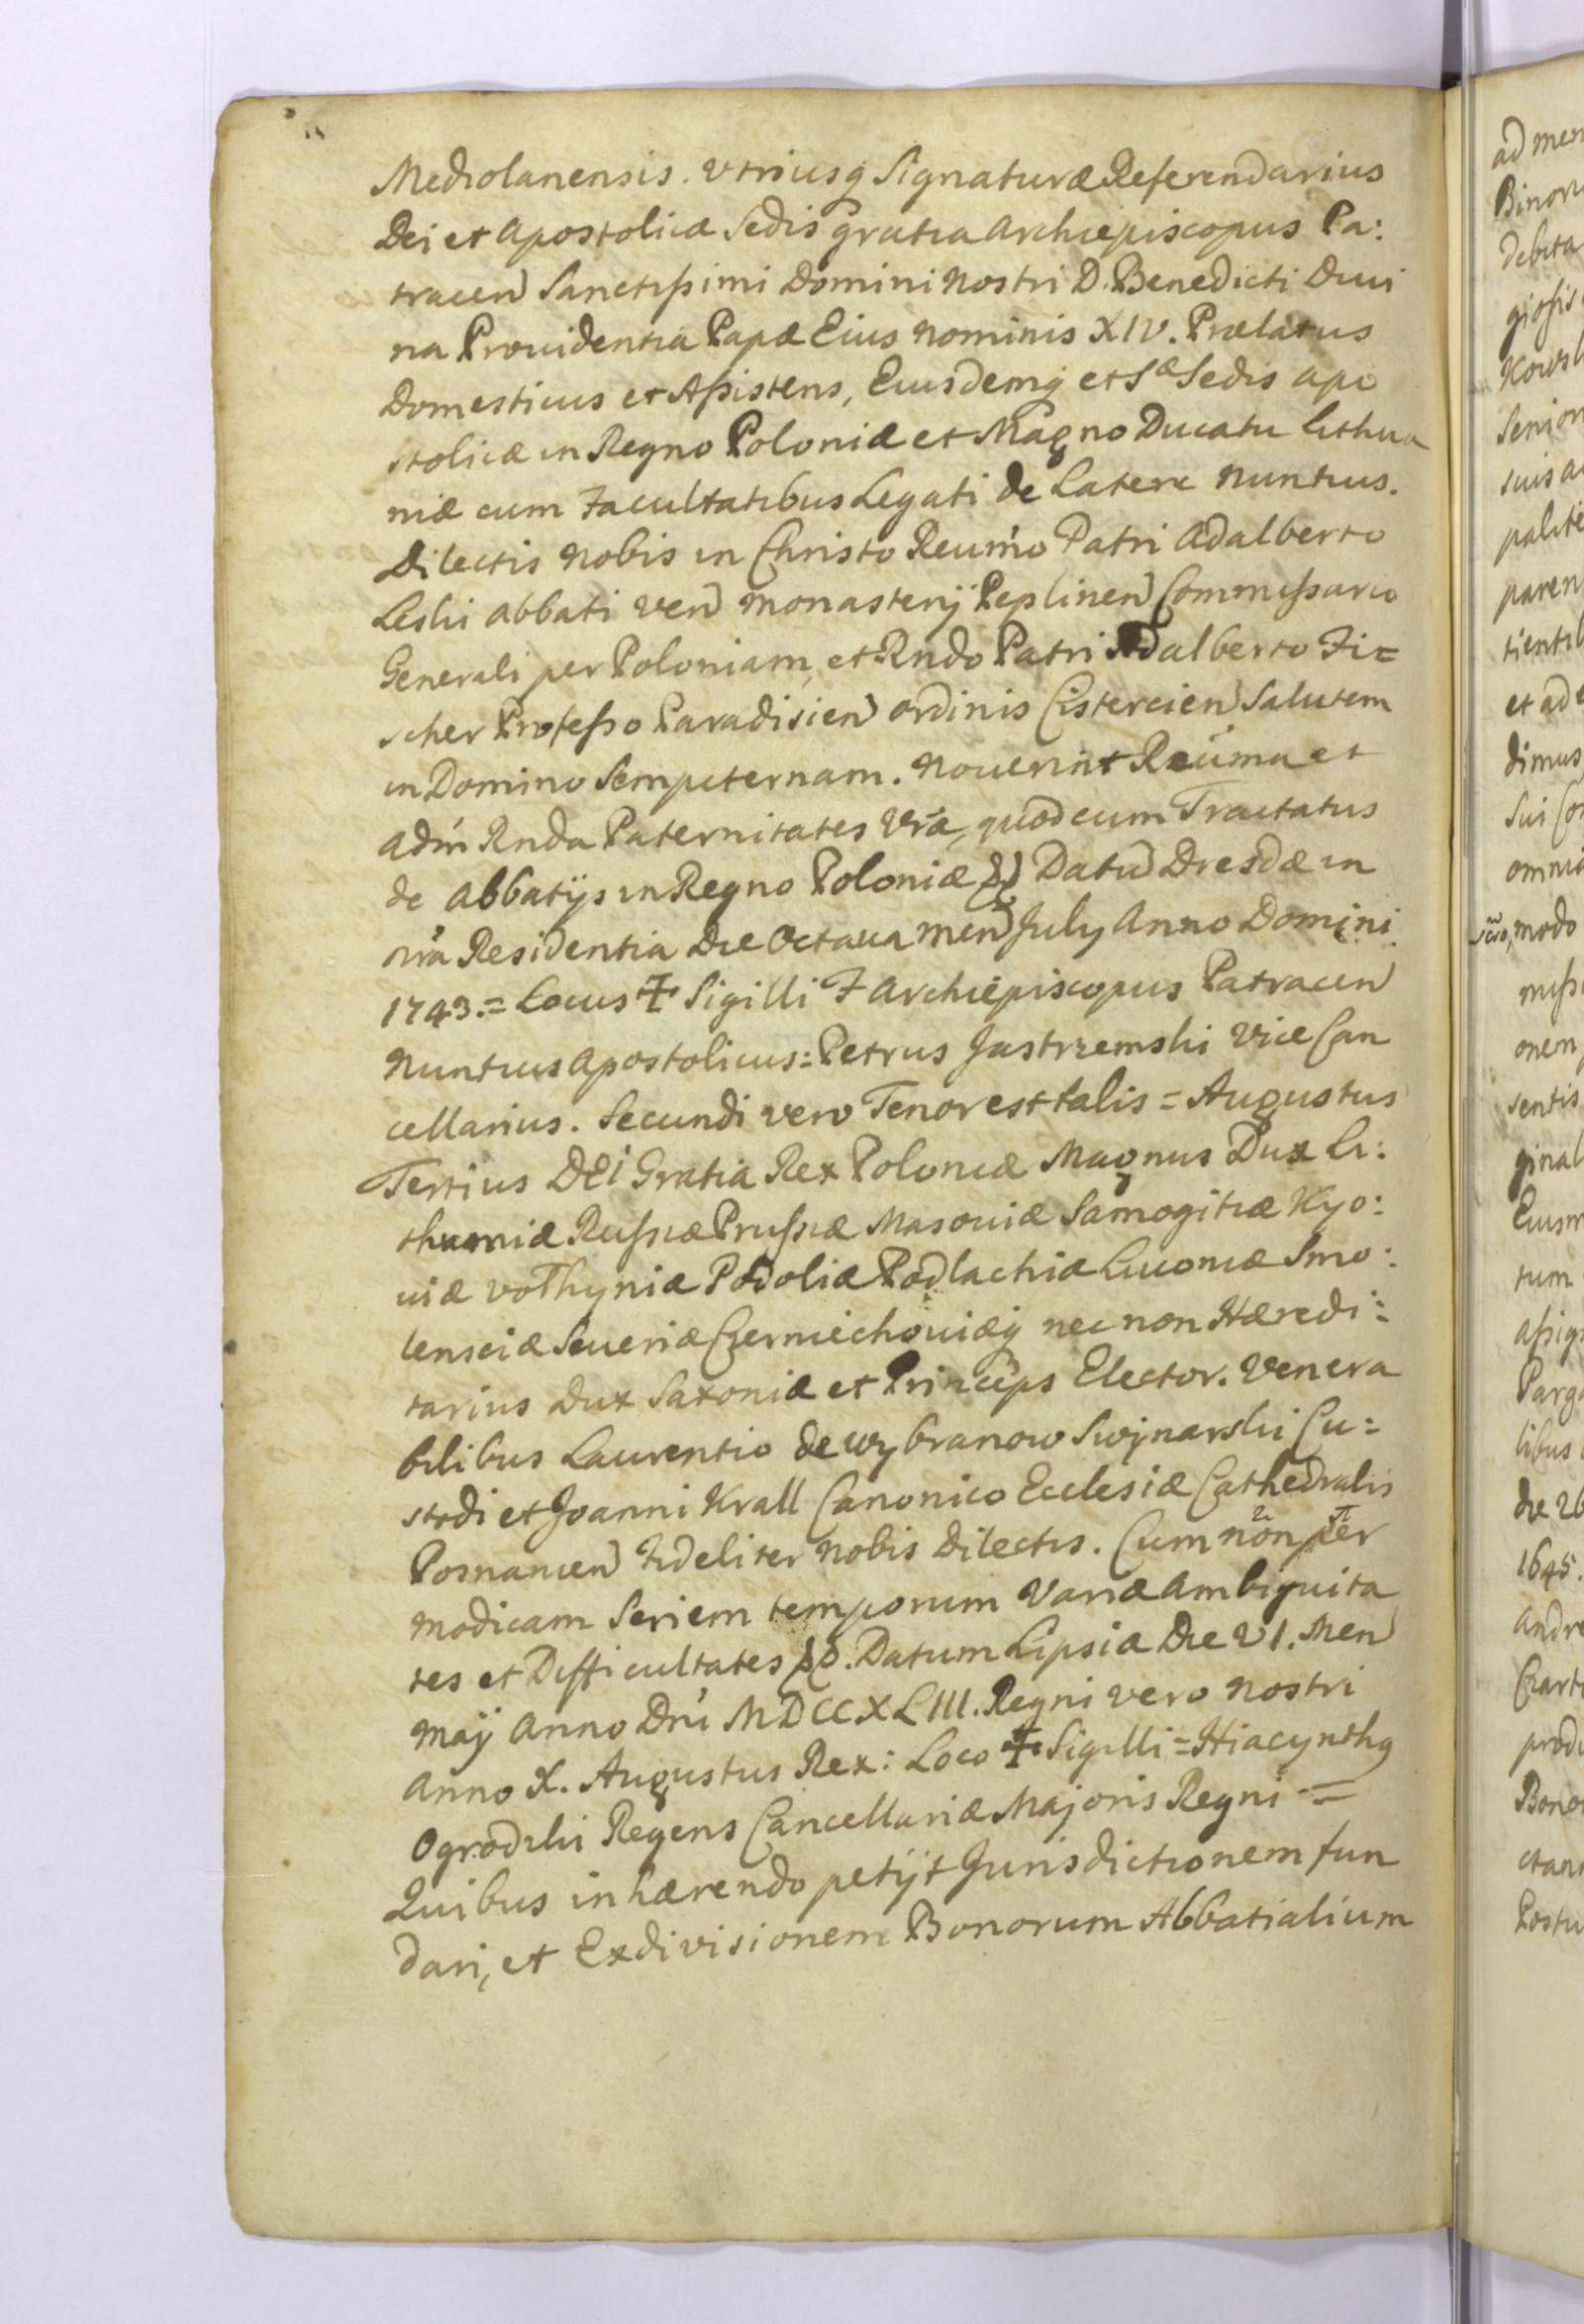 Mediolanensis. Vtriusq Signaturæ Referendarius
Dei et Apostolicæ Sedis gratia Archiepiscopus Pa:
tracen Sanctissimi Domini Nostri D. Benedicti Diui
na Prouidentia Papæ Eius Nominis XIV. Prælatus
Domesticus et Assistens, Eiusdemq et Sæ Sedis apo
stolicæ in Regno Poloniæ et Magno Ducatu Lithua
niæ cum Facultatibus Legati de Latere Nuntius.
Dilectis Nobis in Christo Reumo Patri Adalberto
Leski Abbati Ven Monasterij Peplinen Commissario
Generali per Poloniam, et Rndo Patri Adalberto Fi=
scher Professo Paradisien Ordinis Cistercien Salutem
in Domino Sempiternam. Nouerint Reuma et
Adm Rnda Paternitates Vræ, quod cum Tractatus
de Abbatijs in Regno Poloniæ &&. Datum Dresdæ in
nra Residentia Die Octaua Men July Anno Domini
1743.= Locus ‡ Sigilli F Archiepiscopus Patracen
Nuntius Apostolicus: Petrus Jastrzemski Vice Can
cellarius. Secundi vero Tenor est talis = Augustus
Tertius DEI Gratia Rex Poloniæ Magnus Dux Li:
thuaniæ Russiæ Prussiæ Masouiæ Samogitiæ Kyo:
uiæ Volhyniæ Podoliæ Podlachiæ Liuoniæ Smo:
lensciæ Seueriæ Czerniechouiæq nec non Hæredi:
tarius Dux Saxoniæ et Princeps Elector. Venera
bilibus Laurentio de Wybranow Swynarski Cu=
stodi et Joanni Krall Canonico Ecclesiæ Cathedralis
Posnanien Fideliter Nobis Dilectis. Cum non per
modicam Seriem temporum Variæ Ambiguita
tes et Difficultates &&. Datum Lipsiæ Die VI. Men
Maij Anno Dni MDCCXLIII. Regni vero Nostri
Anno X. Augustus Rex: Loco ‡ Sigilli = Hiacynthq
Ogrodzki Regens Cancellariæ Majoris Regni =
Quibus inhærendo petijt Jurisdictionem fun
dari, et Exdivisionem Bonorum Abbatialium